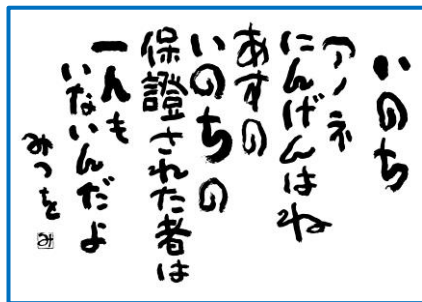 いのち
アノネ
にんげんはね
あすの
いのちの
保證された者は
一人も
いないんだよ
みつを
み